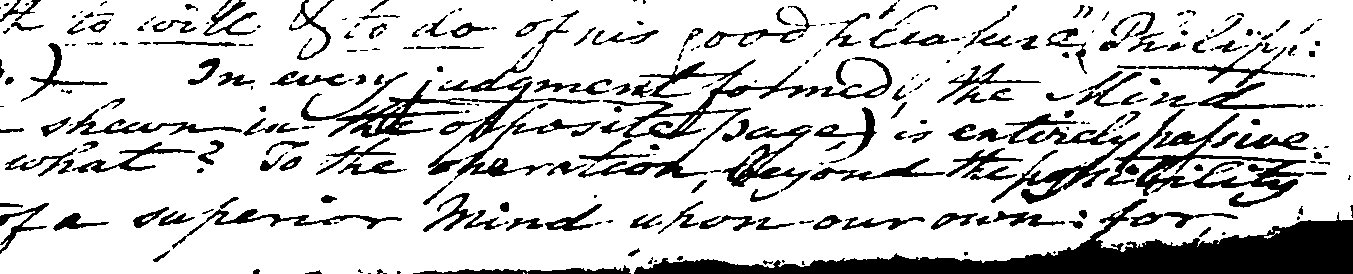 to will & to do of his good pleasure". Philipp:
.) In every judgment formed, the Mind
shewn in the opposite page,) is entirely passive.
what? To the operation, beyond the possibility
of a superior Mind upon our own: for,